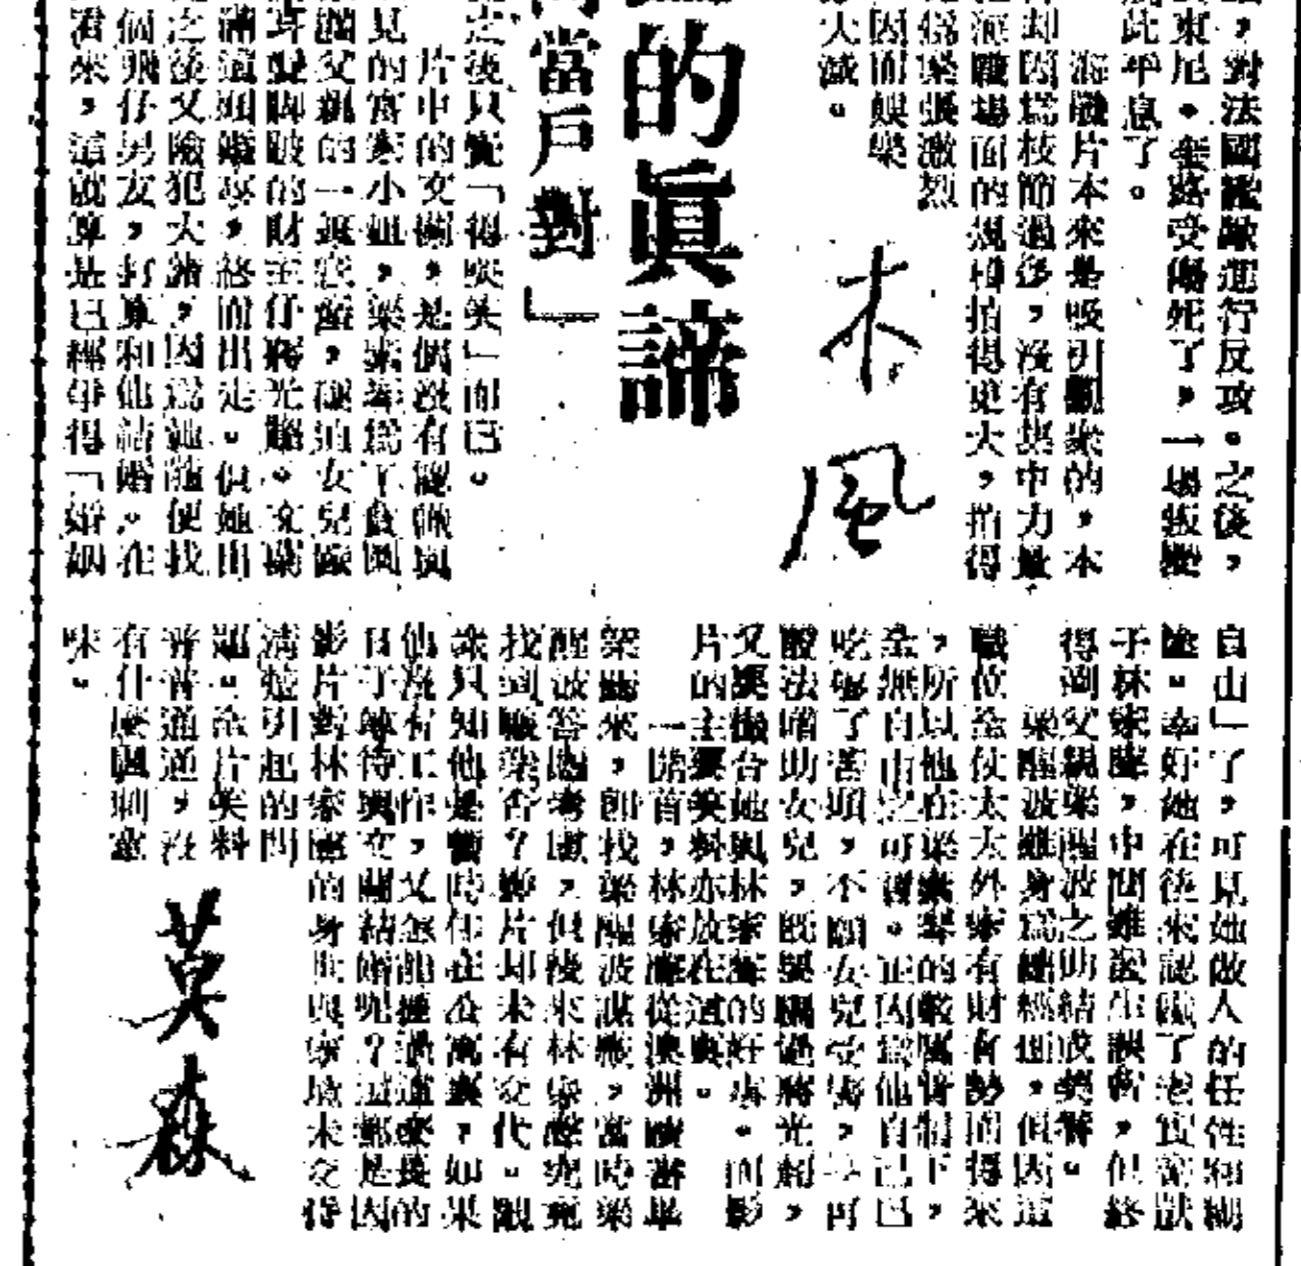 ，對法國艦隊進行反攻。之後，
東尼。奎路受傷死了，一場叛變
此平息了。
海戰片本來是吸引觀眾的，本
却因為枝節過多，沒有集中力量
海戰場面的規模拍得更大，拍得
緊張激烈
因而娛樂
大減。
木風
的眞諦
當戶對」
之後只覺「得啖笑」而已。
片中的文蘭，是個沒有認識與
見的富家小姐，梁素琴為了貪圖
父親的一，硬迫女兒嫁
耳聾脚跛的財主仔蔣光超。文蘭
滿這頭婚事，終而出走。但她出
之後又險犯大錯，因為她隨便找
個飛仔男友，打算和他結婚。在
看來，這就算是已經爭得「婚姻
自由」了，可見她做人的任性和糊
塗。幸好她在後來認識了老實的獃
子林家聲，中間雖發生誤會，但終
得到父親梁醒波之助結成美眷。
梁醒波雖身為總經理，但因這
職位全仗太太外家有財有勢而得來
，所以他在梁素琴的雌風脅制下，
全無自由之可言。正因為他自己已
吃够了苦頭，不願女兒受害，乃再
設法暗助女兒，既要瞞過蔣光超，
又要撮合她與林家聲的好事。而影
片的主要笑料亦放在這裏。
一開首，林家聲從澳洲讀書畢
業歸來，即找梁醒波謀職，當時梁
醒波答應考慮，但後來林家聲究竟
找到職業否？影片却未有交代。觀
眾只知他是暫時住在公寓裏，如果
他沒有工作，又怎能捱過這麼長的
日子等待與文蘭結婚呢？這都是因
影片對林家聲的身世與家境未交待
清楚引起的問
題。全片笑料
普普通通，沒
有什麼諷刺意
味。
莫森